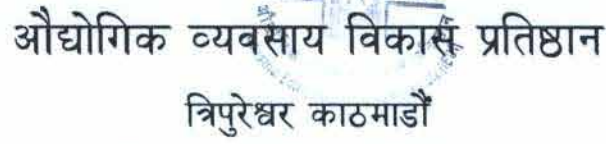 औद्योगिक व्यवसाय विकास प्रतिष्ठान
त्रिपुरेश्वर काठमाडौं